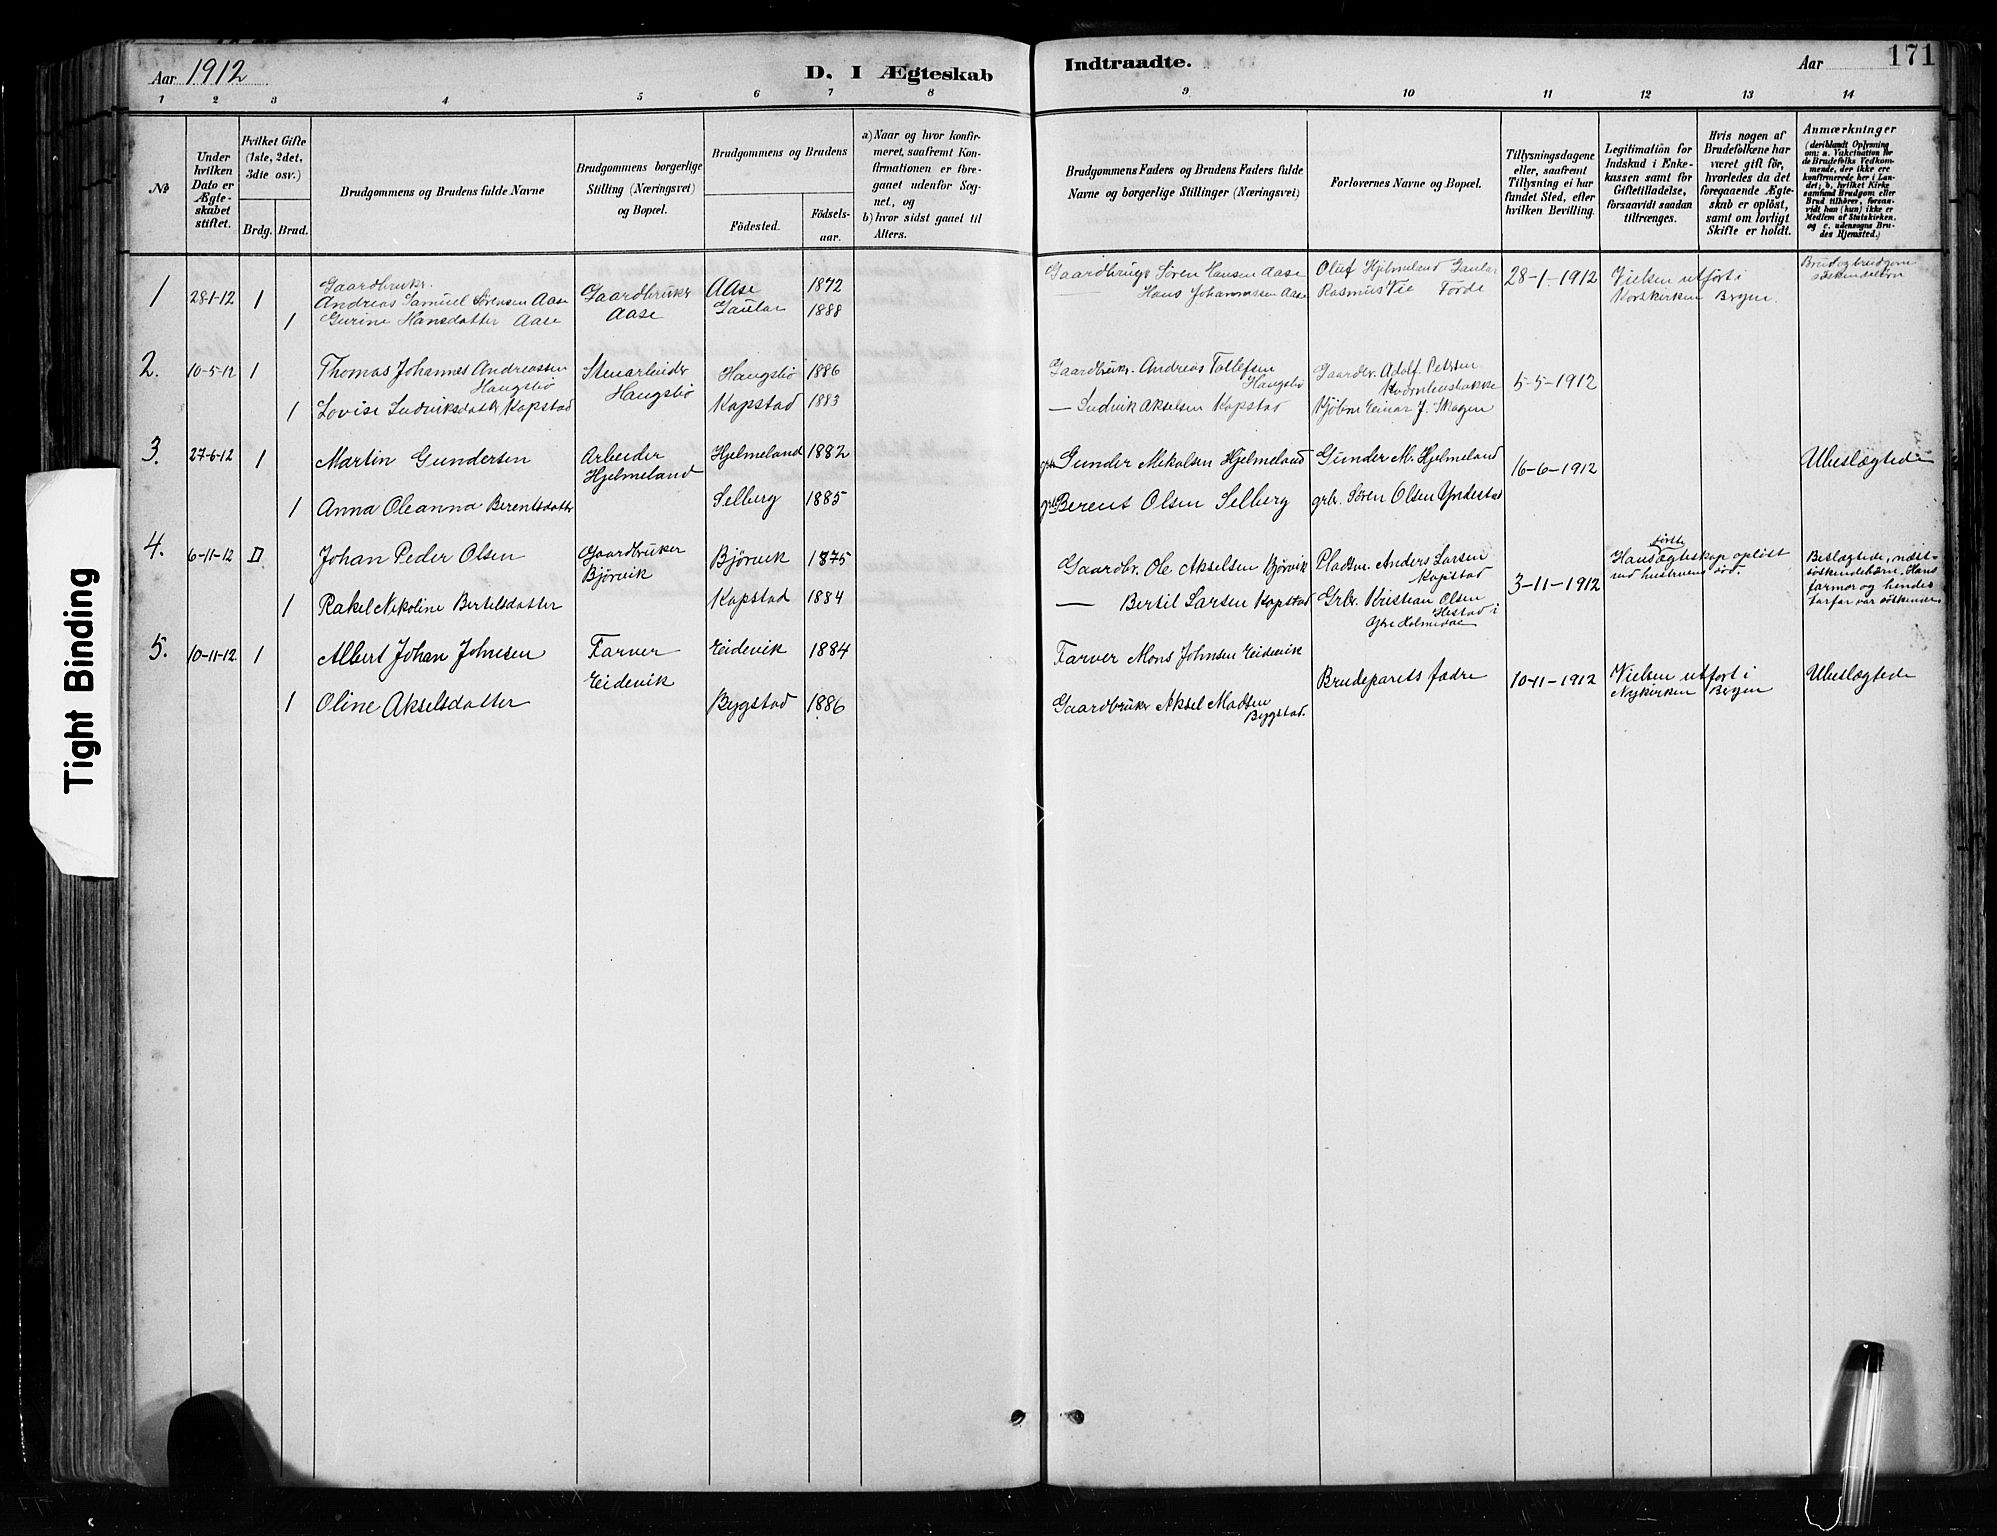 Aar 1912
D. I Ægteskab
Indtraadte.
Aar
171
1 2 3 4 5 6 7 8 9 10 11 12 13 14
No
Under hvilken Dato er Ægteskabet stiftet.
Hvilket Gifte (1ste, 2det, 3die osv.)
Brdg. Brud.
Brudgommens og Brudens fulde Navne
Brudgommens borgerlige Stilling (Næringsvei) og Bopæl.
Brudgommens og Brudens
Födested.
Födselsaar.
a) Naar og hvor konfirmeret, saafremt Konfirmationen er foregaaet udenfor Sognet, og
b) hvor sidst gaaet til Alters.
Brudgommens Faders og Brudens Faders fulde Navne og borgerlige Stillinger (Næringsvei)
Forlovernes Navne og Bopæl.
Tillysningsdagene eller, saafremt Tillysning ei har fundet Sted, efter hvilken Bevilling.
Legitimation for Indskud i Enkekassen samt for Giftetilladelse, forsaavidt saadan tiltrænges.
Hvis nogen af Brudefolkene har været gift før, hvorledes da det foregaaende Ægteskab er oplöst, samt om lovligt Skifte er holdt.
Anmærkninger (deriblandt Oplysning om: a. Vakcination for de Brudefolks Vedkommende, der ikke ere konfirmerede her i Landet; b. hvilket Kirkesamfund Brudgom eller Brud tilhører, forsaavidt han (hun) ikke er Medlem af Statskirken. og c. udensogns Brudes Hjemsted.)
1 28-1-12 1 Gaardbrukr.
Andreas Samuel Sørensen Aase Gaardbruker Aase Aase 1872
1 Gurine Hansdatter Aase Gaular 1888
Gaardbrugr Søren Hansen Aase
— Hans Johannessen Aase
Oluf Hjelmeland Gaular
Rasmus Vie Førde
28-1-1912
Vielsen utført i Korskirken Bergen.
Brud og brudgom søskendebørn
2. 10-5-12 1 Thomas Johannes Andreassen Haugsbø Stenarbeider Haugsbø Haugsbø 1886
1 Lovise Ludviksdatter Kapstad Kapstad 1883
Gaardbrukr. Andreas Tollefsen Haugsbø
— Ludvik Akselsen Kapstad
Gaardbr. Adolf Petersen
Einar J. Skagen
5-5-1912
3. 27-6-12 1 Martin Gundersen Arbeider Hjelmeland Hjelmeland 1882
1 Anna Oleanna Berentsdatter Selberg 1885
grb. Gunder Mikalsen Hjelmeland
grb. Berent Olsen Selberg
Gunder M. Hjelmeland
grb. Søren Olsen Yndestad
16-6-1912
Ubeslægtede
4. 6-11-12 II Johan Peder Olsen Gaardbruker Bjørvik Bjørvik 1875
1 Rakel Nikoline Bertelsdatter Kapstad 1884
Gaardbr. Ole Akselsen Bjørvik
— Bertil Larsen Kapstad
Pladsm. Anders Larsen Kapstad
Grbr. Kristian Olsen Hestad i Ytre Holmedal
3-11-1912
Hans første egteskap opløst ved hustruens død.
Beslægtede, næstsøskendebørn. Hans farmor og hendes farfar var søskende.
5. 10-11-12 1 Albert Johan Johnsen Farver Eidevik Eidevik 1884
1 Oline Akselsdatter Bygstad 1886
Farver Mons Johnsen Eidevik
Gaardbruker Aksel Madsen Bygstad.
Brudeparets fædre
10-11-1912
Vielsen utført i Nykirken Bergen
Ubeslægtede
Tight Binding